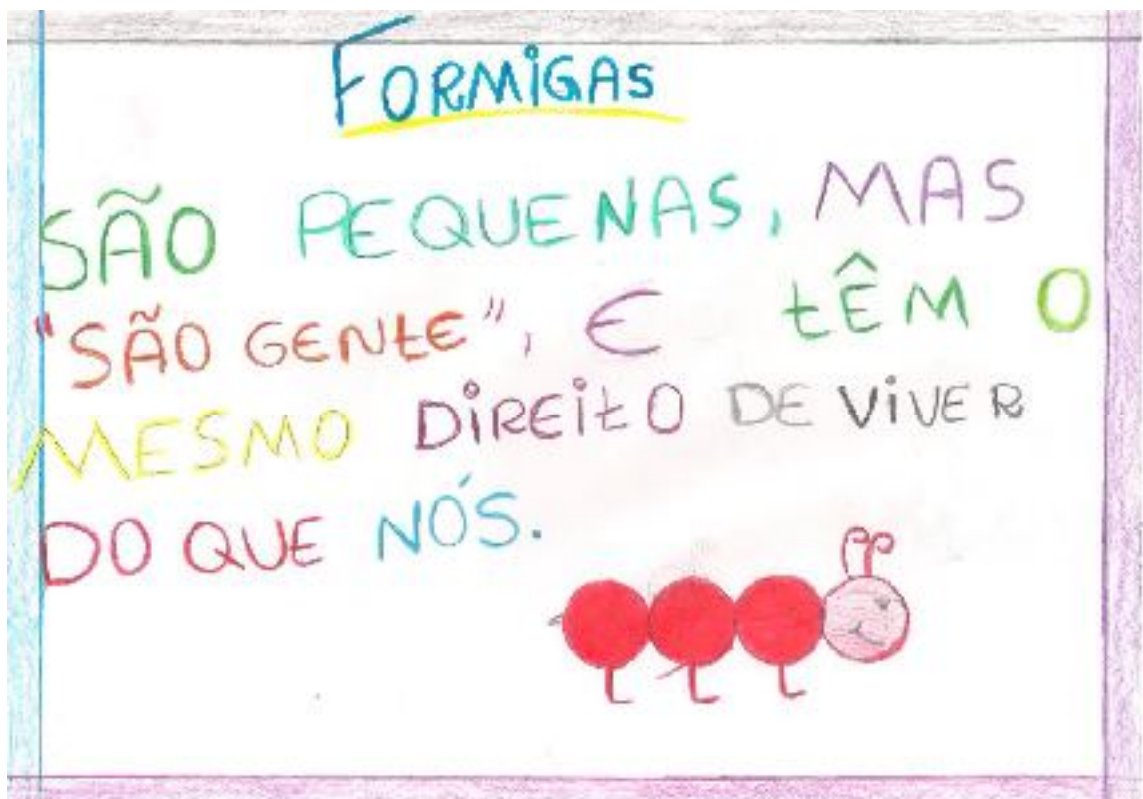 FORMiGAS
SÃO PEQUENAS, MAS
"SÃO GENtE", E tÊM O
MESMO DiREitO DE ViVER
DO QUE NÓS.